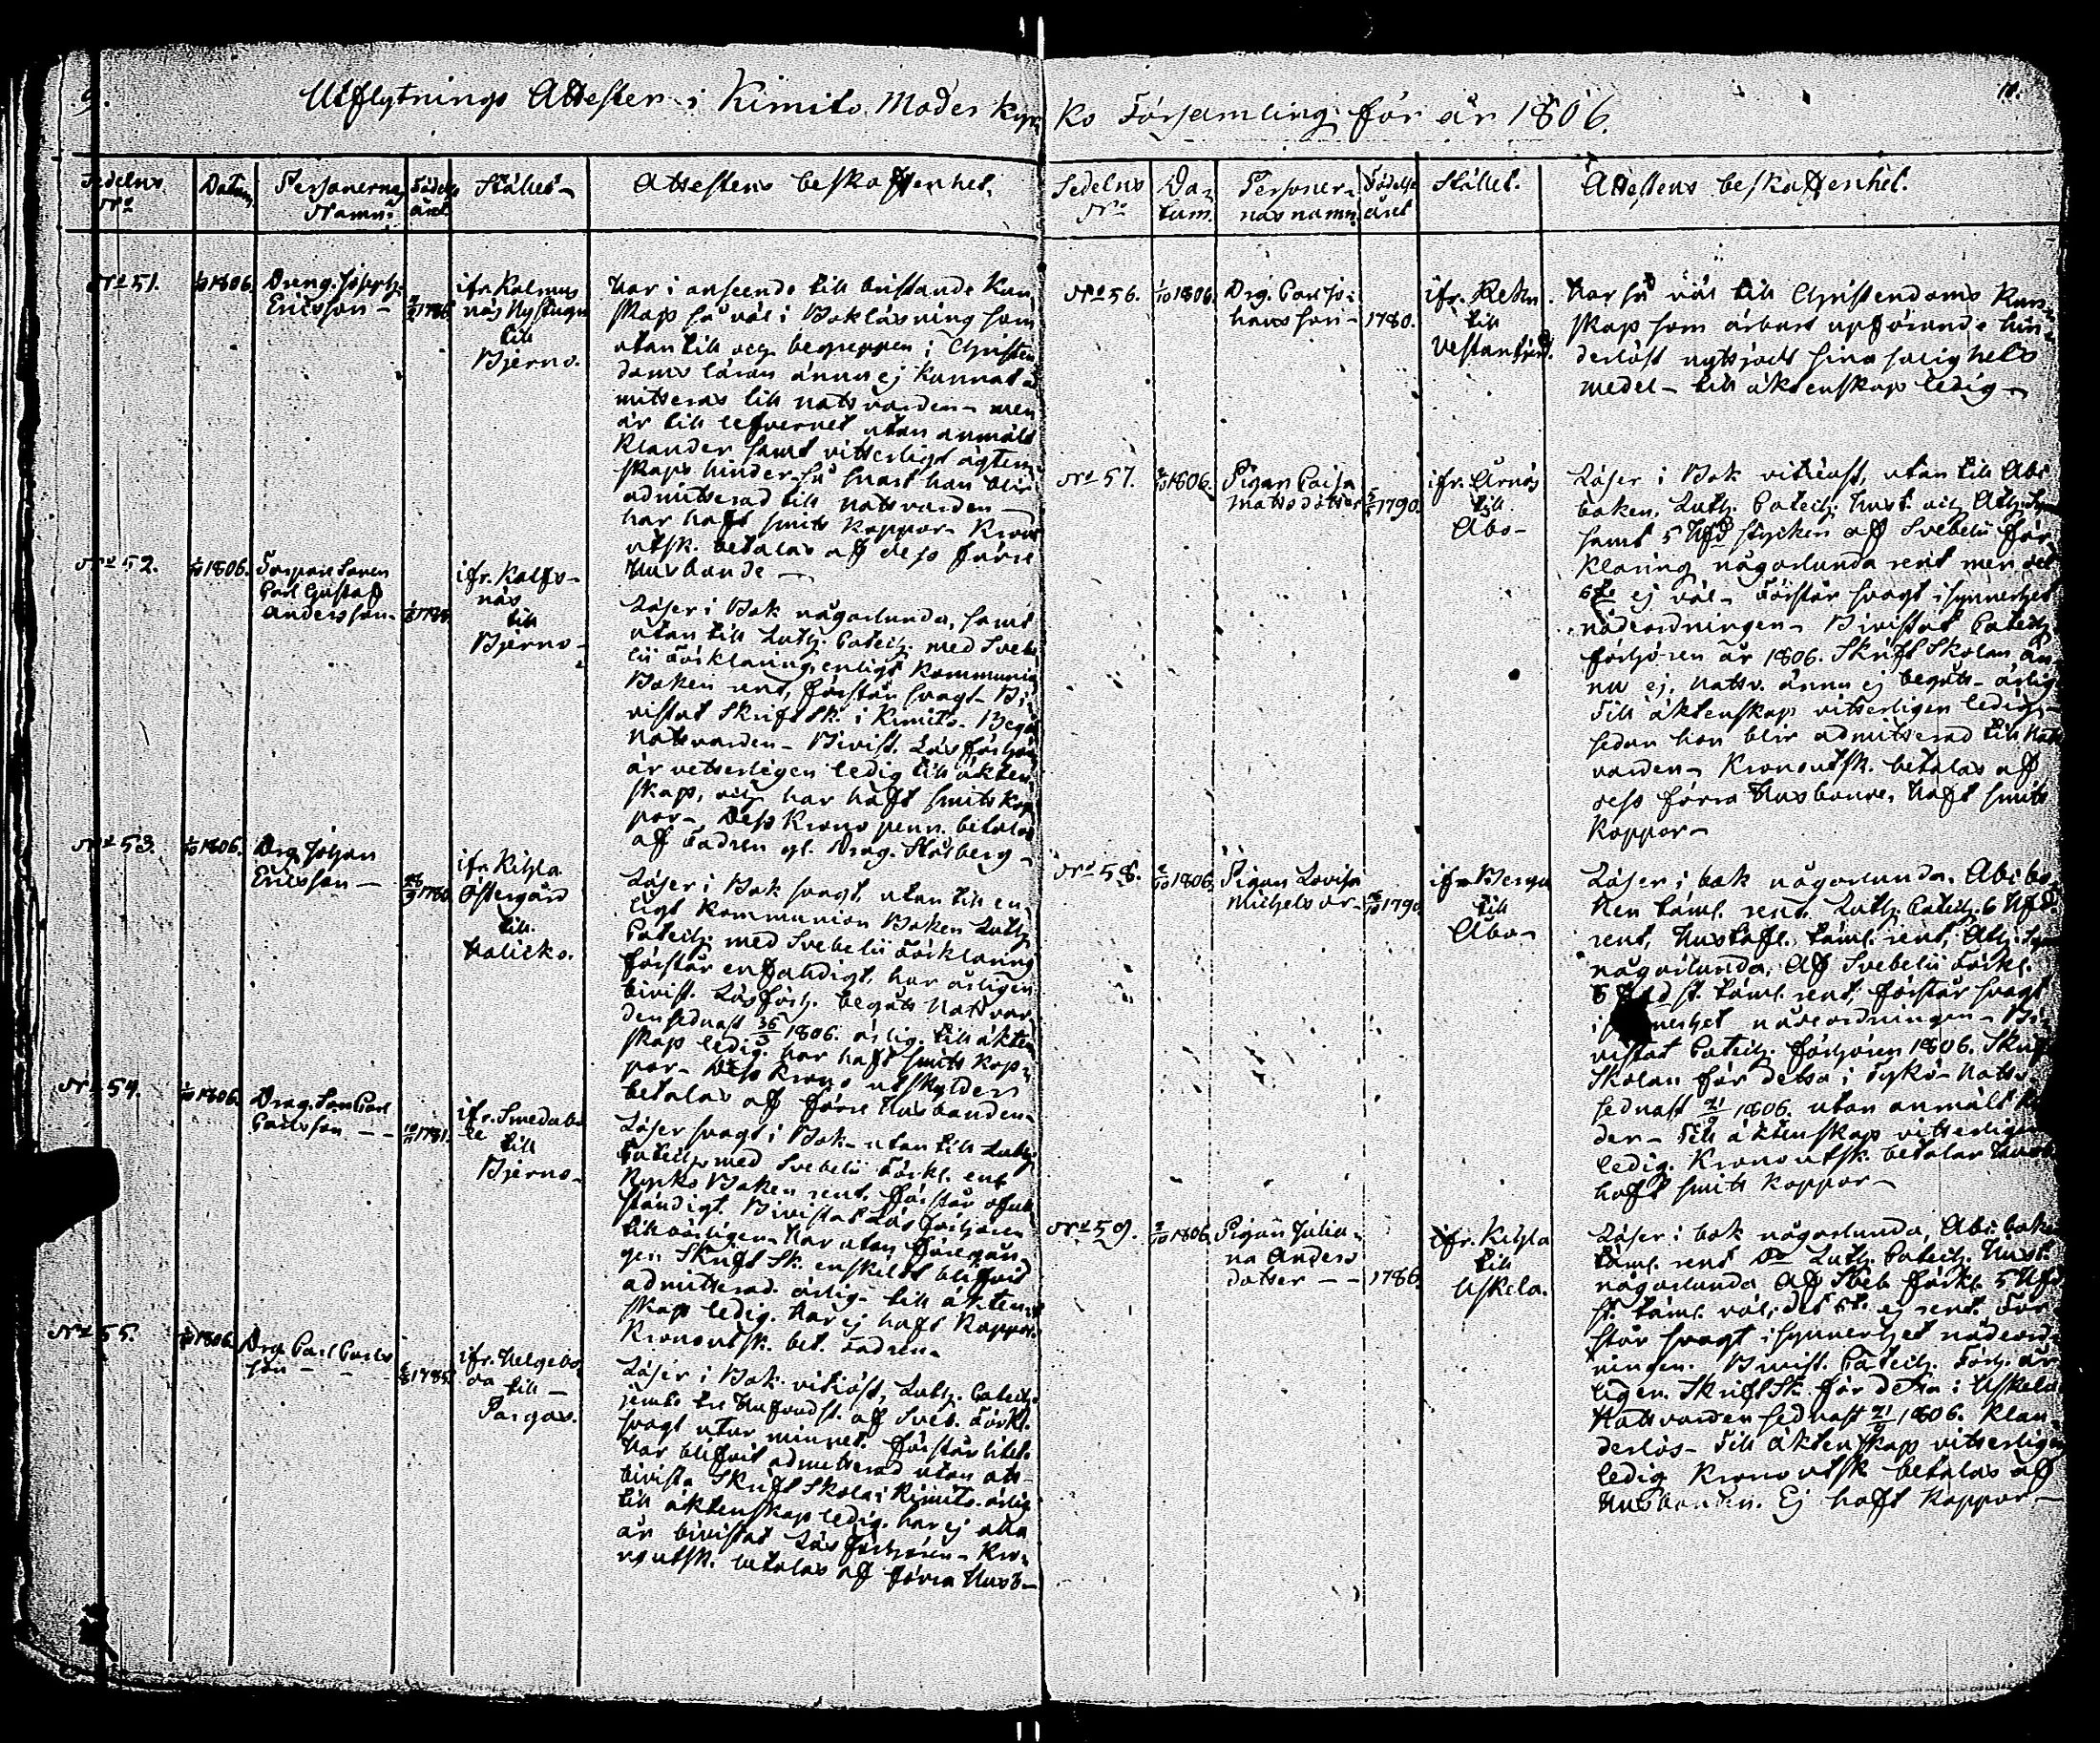 9.
Utflytnings Attester i Kimito Moder Kyr
Sedelns No
Datum
Personernas Namn
Födelse året
Stället
Attestens beskaffenhet.
No 51.
1806.
Dreng. Joseph
Ericsson
1786
ifr. Kalmus
näs Nystugu
till
Bjerno.
Har i anseende till bristande Kun
skap så väl i Bokläsning som
utan till och begreppen i Christen
doms läran ännu ej kunnat ad
mitteras till natsvarden men
är till lefvernet utan anmält
Klander samt vitterligt ägten
skaps hinder så snart han blir
admitterad till natsvarden
har haft smitt Koppor Krono
utsk. betalas af dess förre
Husbonde
No 52.
1806.
Carl Gustaf
Andersson
ifr. Kalfs
näs
till
Bjerno
Läser i Bok någorlunda, samt
utan till Luth. Catech. med Svebe
lii Förklaring enligt Kommunion
Boken rent, förstår svagt Bi
vistat Skriftsk. i Kimito. Begått
Natsvarden Bivist. Läsförhör
är vetterligen ledig till äkten
skap, och har haft smitt Kop
por Dess Krono penn. betalas
af Fadren gl. Drag. Stålberg
No 53.
1806.
Drg. Johan
Ericsson
1780
ifr. Kihla
Östergård
till
Halicko.
Läser i Bok svagt, utan till en
ligt Kommunion Boken Luth.
Catech. med Svebelii Förklaring
förstår enfaldigt, har årligen
bivist. Läsförh. begått Nattvar
den sednast 1806. ärlig. till äkten
skap ledig. har haft smitt Kop
por Dess Krono utskylder
betalas af förre Husbonden
No 54.
1806.
Drag. Son Carl
Carlsson
1781.
ifr. Smedabo
le
till
Bjerno
Läser svagt i Bok utan till Luth.
Catech. med Svebelii Förkl. enl.
Kyrko Boken rent. förstår ofull
ständigt. Bivistat Läsförhören
likväl årligen Har utan föregån
gen Skrift Sk. enskildt blifvit
admitterad. ärlig till äkten
skap ledig. Har ej haft Koppor.
Kronoutsk. bet. Fadren
No 55.
1806.
Drg. Carl Carls
son
1785.
ifr. Helgebo
da till
Pargas.
Läser i Bok vitiöst, Luth. Catech.
jemte tre Hufvudst. af Sveb. Förkl.
svagt utur minnet. förstår litet.
Har blifvit admitterad utan att
bivista Skrift Skola i Kimito. ärlig
till äktenskap ledig. har ej alla
år bivistat Läsförhören Kro
no utsk. betalas af förra Husb.
10.
ko Församling för år 1806.
Sedelns No
Da
tum.
Personer
nas namn
Födelse
året
Stället.
Attestens beskaffenhet.
No 56.
1/10 1806.
Drg. Carl Jo
hansson
1780.
ifr. Rekn
till
Vestanfjerd.
Har så väl till Christendoms Kun
skap som ärbart upförande hin
derlöst nyttjadt sina salighets
medel till äktenskap ledig
No 57.
1806.
Pigan Caisa
Matsdotter
1790.
ifr. Arnäs
till
Åbo
Läser i Bok vitiöst, utan till Abc
boken, Luth. Catech. Hust. och Ath. Sym
samt 5 Hfd stycken af Svebelii För
klaring någorlunda rent men det
6te ej väl. Förstår svagt isynnerhet
nådeordningen Bivistat Catech.
förhören år 1806. Skrift Skolan än
nu ej, Natsv. ännu ej begått ärlig
Till äktenskap vitterligen ledig
sedan hon blir admitterad till Natt
varden Kronoutsk. betalas af
dess förra Husbonde, Haft smitt
Koppor
No 58.
1806.
Pigan Lovisa
Michels dr.
1790
ifr. Berga
till
Åbo
Läser i bok någorlunda. Abc bo
ken täml. rent. Luth. Catech. 6 Hfd.
rent, Hustafl. täml. rent, Ath. Sym
någorlunda, Af Svebelii Förkl.
st. täml. rent, förstår svagt
nådeordningen Bi
vistat Catech. förhören 1806. Skrift
Skolan för detta i Tykö Natsv.
sednast 1806. utan anmält
der Till äktenskap vitterligen
ledig. Kronoutsk. betalar Husb.
haft smitt Koppor
No 59.
1806.
Pigan Julia
na Anders
dotter
1786.
ifr. Kihla
till
Uskela.
Läser i bok någorlunda, Abc boken
täml. rent Do Luth. Catech. Hust.
någorlunda Af Sveb. förkl. 5 Hfd
st. täml. väl, det 6t. ej rent. För
står svagt isynnerhet nådeord
ningen. Bivist. Catech. Förh. år
ligen. Skrift Sk. för detta i Uskela
Natsvarden sednast 1806. Klan
derlös Till äktenskap vitterligen
ledig Kronoutsk betalas af
Husbonden. Ej haft Koppor